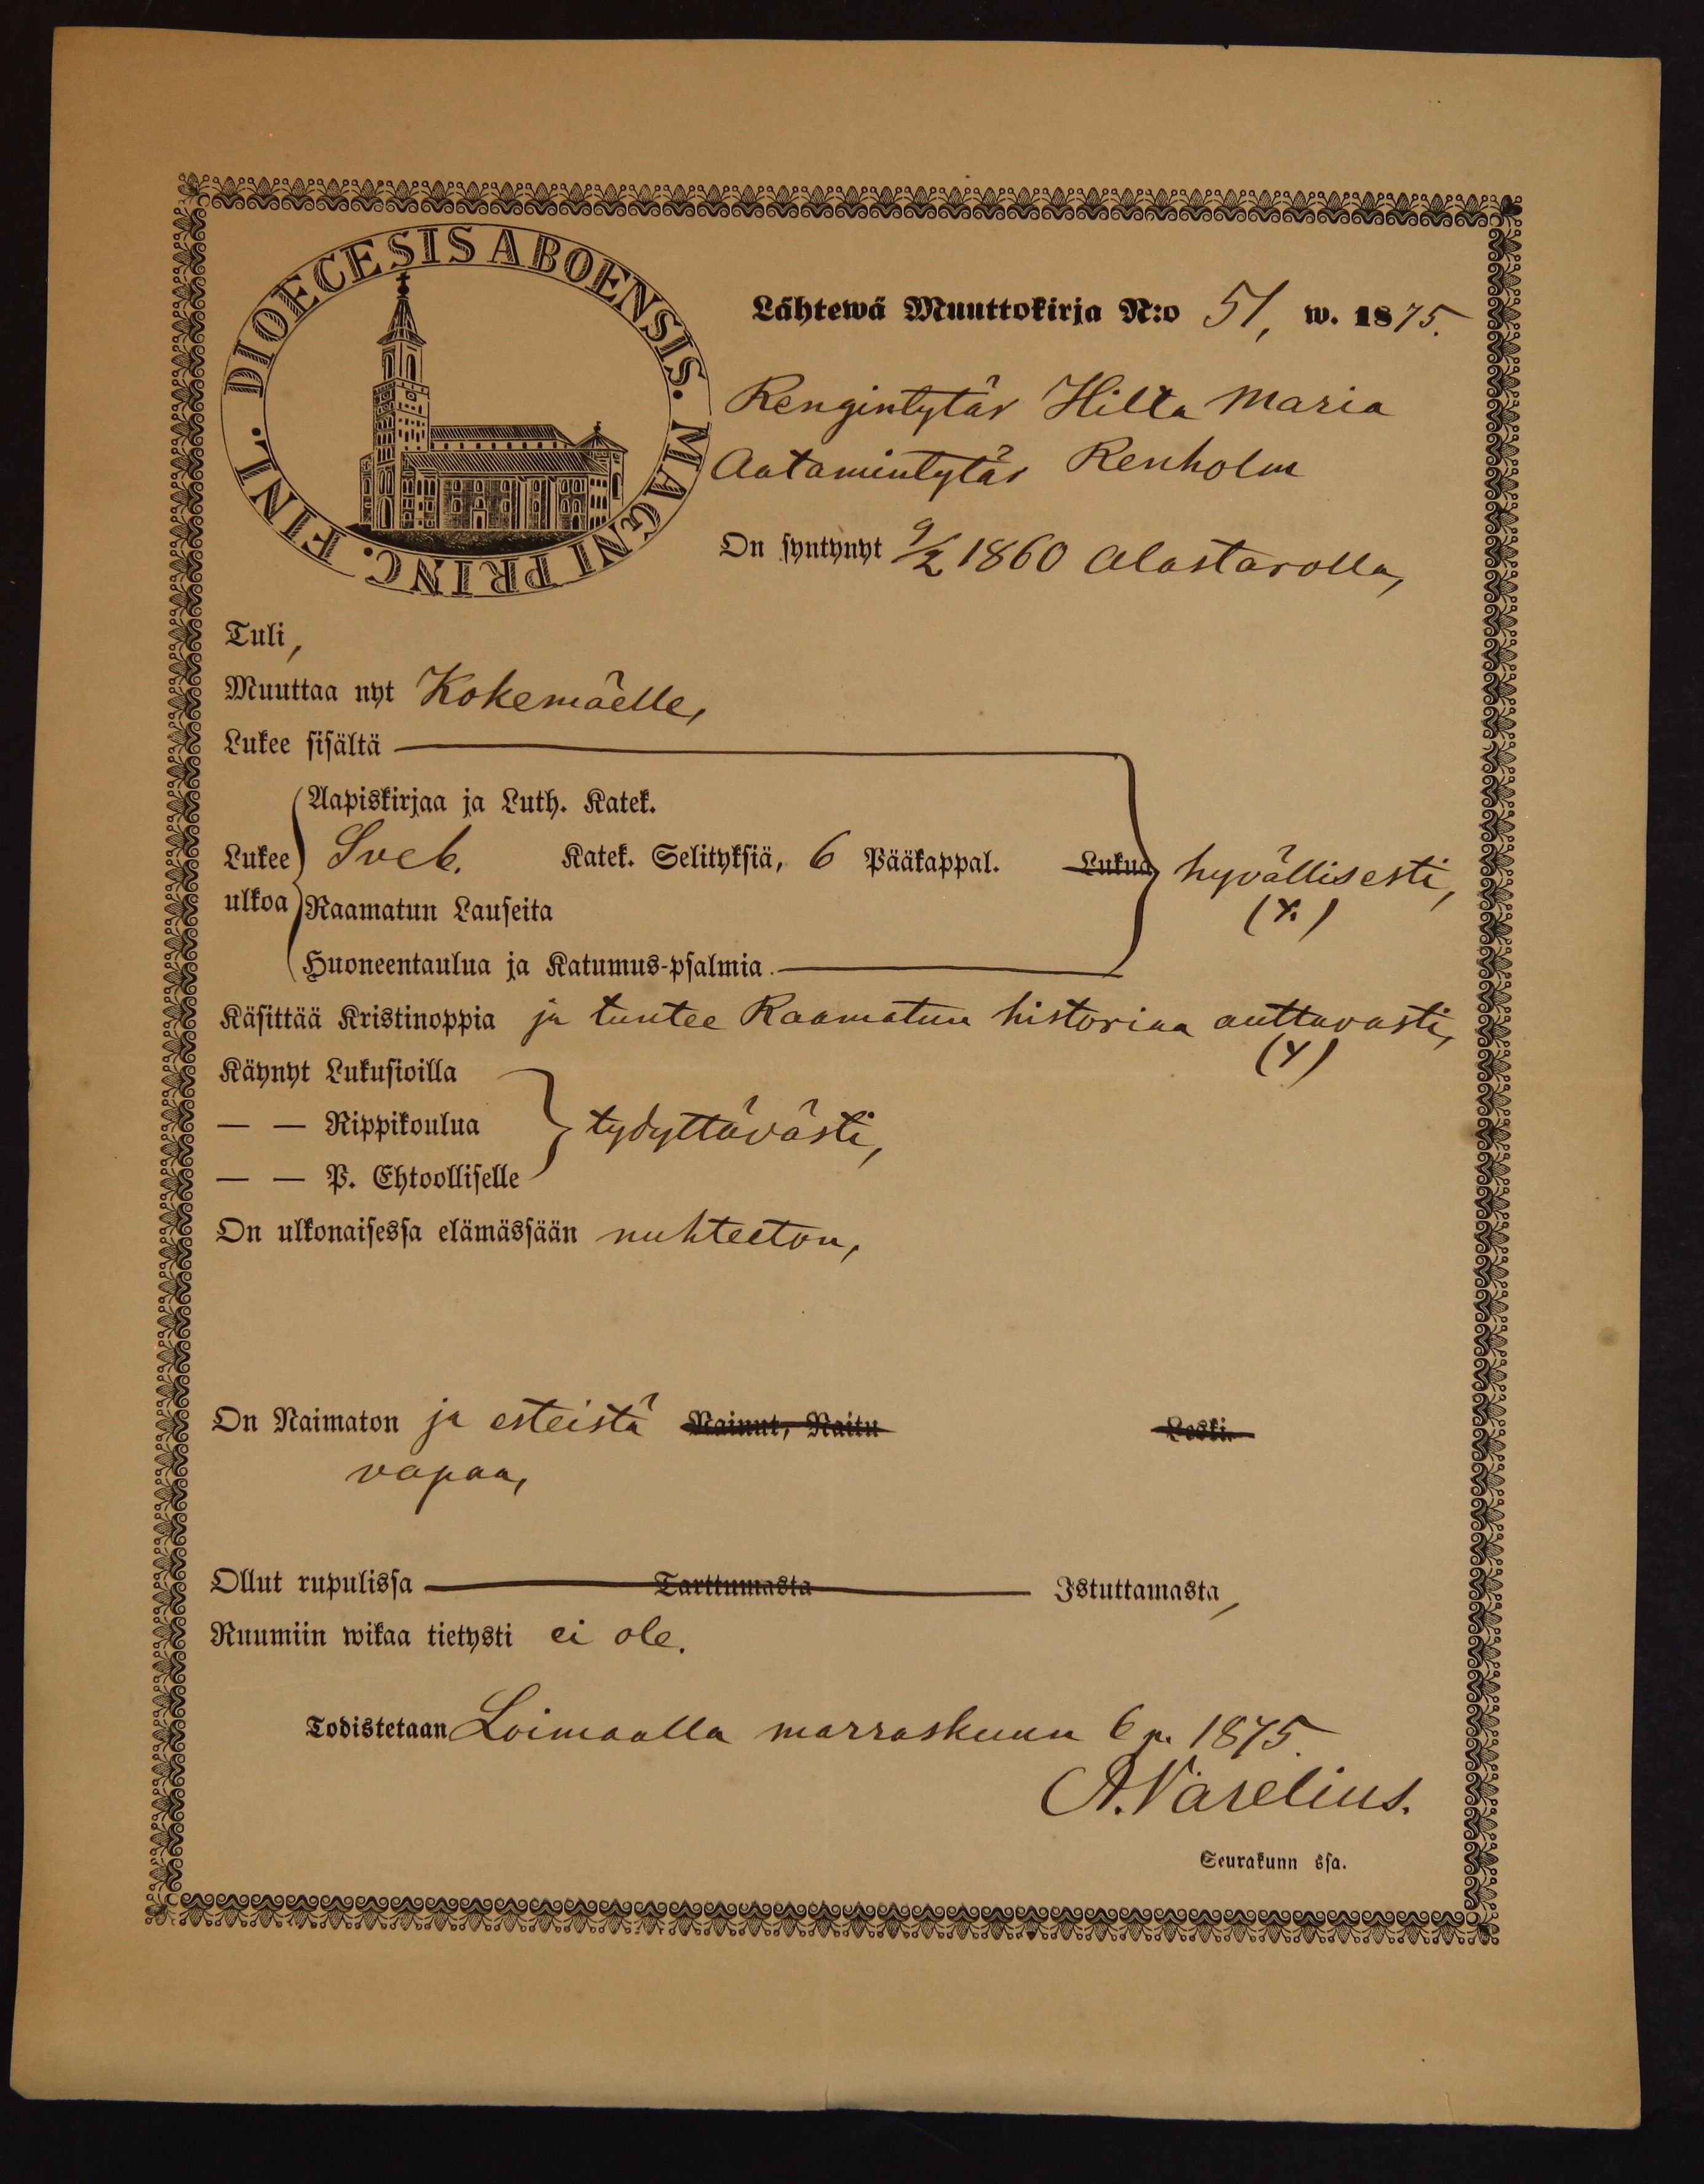 DIOECESIS ABOENSIS. MAGNI PRINC. FINL.
Lähtewä Muuttokirja N:o 51, w. 1875.
Rengintytär Hilta Maria
Aatamintytär Renholm
On syntynyt 9/2 1860 Alastarolla,
Tuli,
Muuttaa nyt Kokemäelle,
Lukee sisältä
Aapiskirjaa ja Luth. Katek.
Lukee ulkoa Sveb. Katek. Selityksiä, 6 Pääkappal. Lukua hyvällisesti,
Raamatun Lauseita (y.)
Huoneentaulua ja Katumus-psalmia.
Käsittää Kristinoppia ja tuntee Raamatun historiaa auttavasti,
(y)
Käynyt Lukusioilla
— — Rippikoulua tydyttävästi,
— — P. Ehtoolliselle
On ulkonaisessa elämässään nuhteeton,
On Naimaton ja esteistä Nainut, Naitu Leski.
vapaa,
Ollut rupulissa Tarttumasta Istuttamasta,
Ruumiin wikaa tietysti ei ole.
Todistetaan Loimaalla marraskuun 6 p. 1875.
A. Varelius.
Seurakunn ssa.